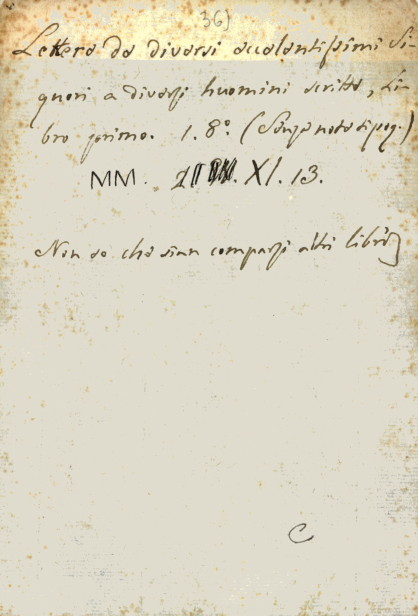 36)
Lettere da diversi eccelentissimi Si-
gnori a diversi huomini scritte, Li-
bro primo. 1. 8°. (Senza note tipog.)
MM. XI. 13.
Non so che sian comparsi altri libri
C